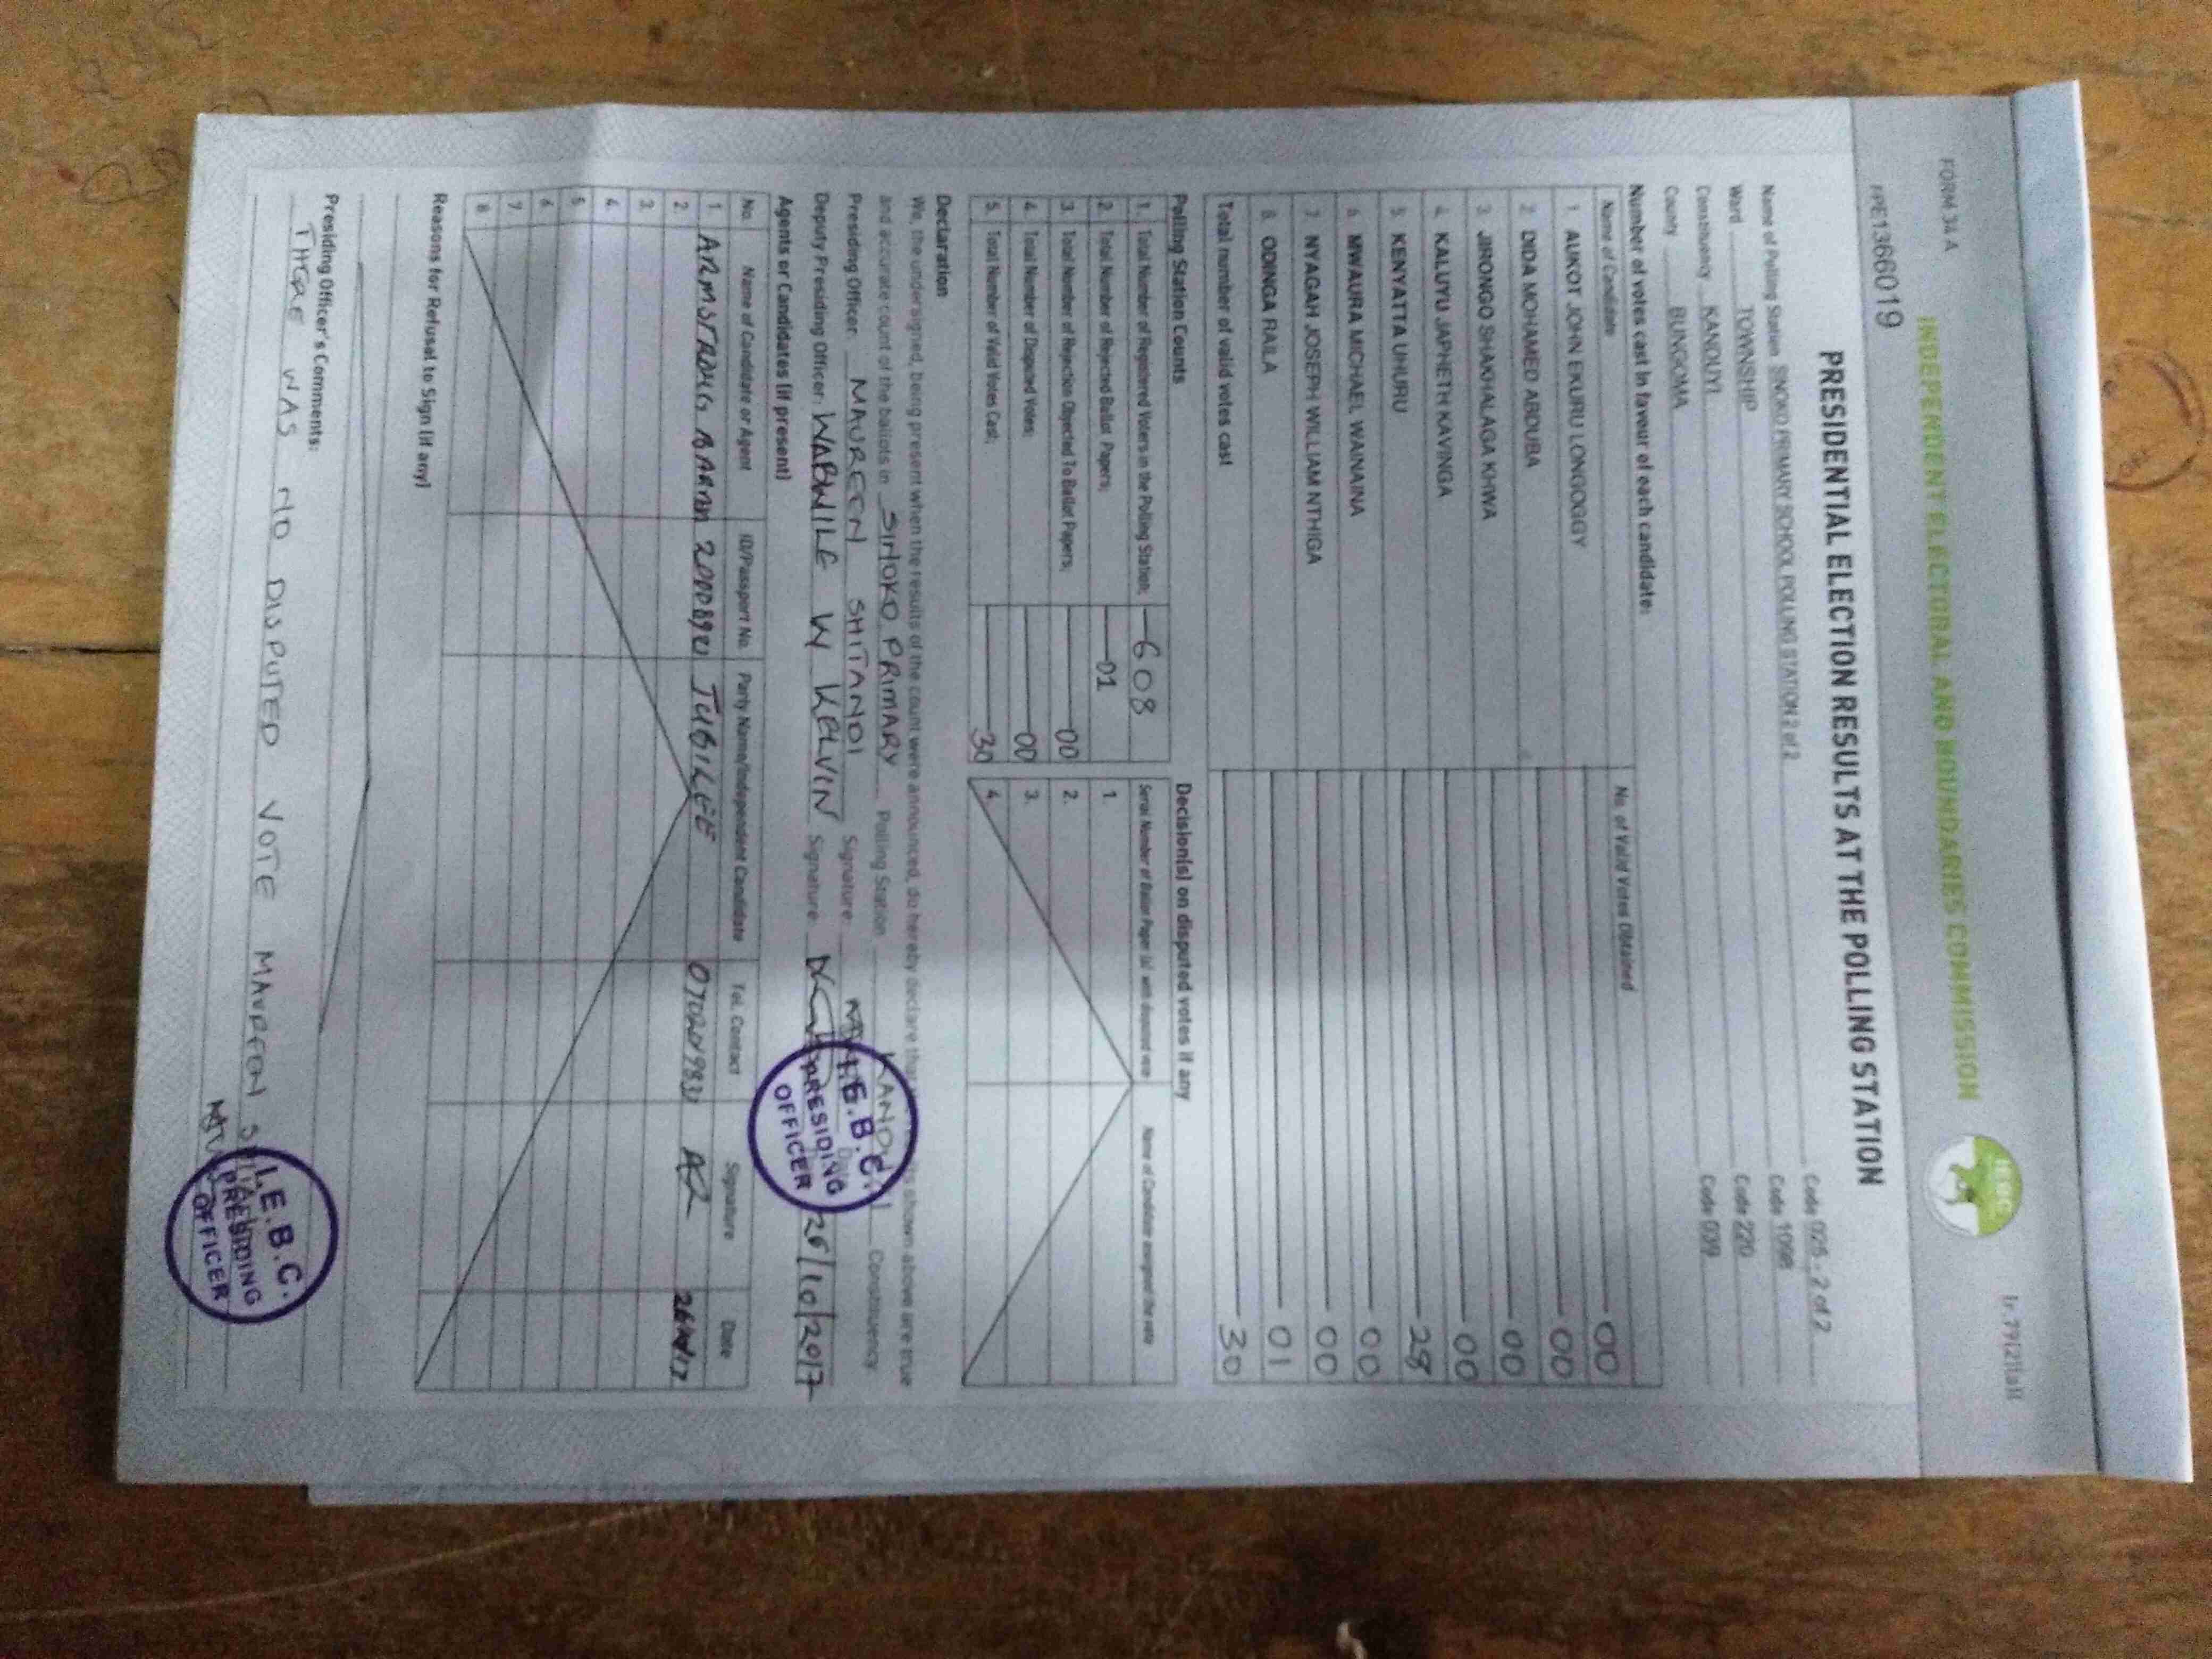 FORM 34 A
INDEPENDENT ELECTORAL AND BOUNDARIES COMMISSION
IEBC
PRESIDENTIAL ELECTION RESULTS AT THE POLLING STATION
Name of Polling Station SINOKO PRIMARY SCHOOL POLLING STATION 2 of 2 Code 025 - 2 of 2
Ward TOWNSHIP Code 1098
Constituency KANDUYI Code 220
County BUNGOMA Code 039
Number of votes cast in favour of each candidate:
Name of Candidate No. of Valid Votes Obtained
1. AUKOT JOHN EKURU LONGOGGY 00
2. DIDA MOHAMED ABDUBA 00
3. JIRONGO SHAKHALAGA KHWA 00
4. KALUYU JAPHETH KAVINGA 00
5. KENYATTA UHURU 29
6. MWAURA MICHAEL WAINAINA 00
7. NYAGAH JOSEPH WILLIAM NTHIGA 00
8. ODINGA RAILA 01
Total number of valid votes cast 30
Polling Station Counts
1. Total Number of Registered Voters in the Polling Station; 608
2. Total Number of Rejected Ballot Papers; 01
3. Total Number of Rejection Objected To Ballot Papers; 00
4. Total Number of Disputed Votes; 00
5. Total Number of Valid Votes Cast; 30
Decision(s) on disputed votes if any
Serial Number of Ballot Paper (s) with disputed vote Name of Candidate assigned the vote
1.
2.
3.
4.
Declaration
We, the undersigned, being present when the results of the count were announced, do hereby declare that shown above are true
and accurate count of the ballots in SINOKO PRIMARY Polling Station KANDUYI Constituency
Presiding Officer: MAUREEN SHITANDI Signature:
Deputy Presiding Officer: WABWILE W KELVIN Signature: 26/10/2017
I.E.B.C.
PRESIDING
OFFICER
Agents or Candidates (if present)
No. Name of Candidate or Agent ID/Passport No. Party Name/Independent Candidate Tel. Contact Signature Date
1. ARMSTRONG JUBILEE
2.
3.
4.
5.
6.
7.
8.
Reasons for Refusal to Sign (if any)
Presiding Officer's Comments:
THERE WAS NO DISPUTED VOTE MAUREEN
I.E.B.C.
PRESIDING
OFFICER